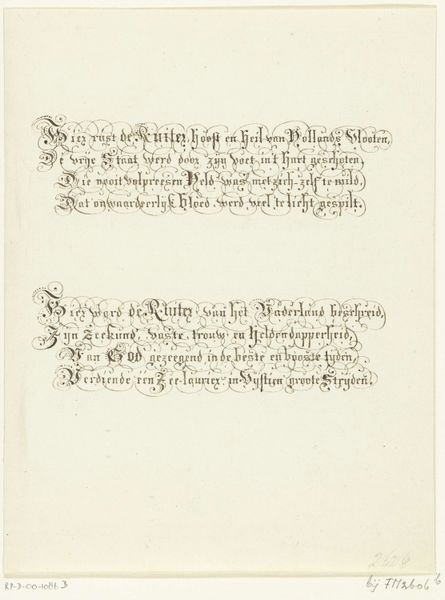 Hier rust de Ruiter, hooft en Heil van Hollands Vlooten,
De vrije Staat werd door zijn voet in't hart geschoten,
Die nooit volpreesen Held was met zich-zelf te mild,
Dat onwaardeerlijk bloed werd veel te licht gespilt.
Hier word de Ruiter van het Vaderland beschreid,
Zyn Zeekund, vaste trouw en Heldendapperheid,
Van GOD gezeegend in de beste en booste tyden,
Verdiende één Zee-laurier in Vyftien groote Stryden.
2606
RP-P-00-1084 B
bij FM 2606 b